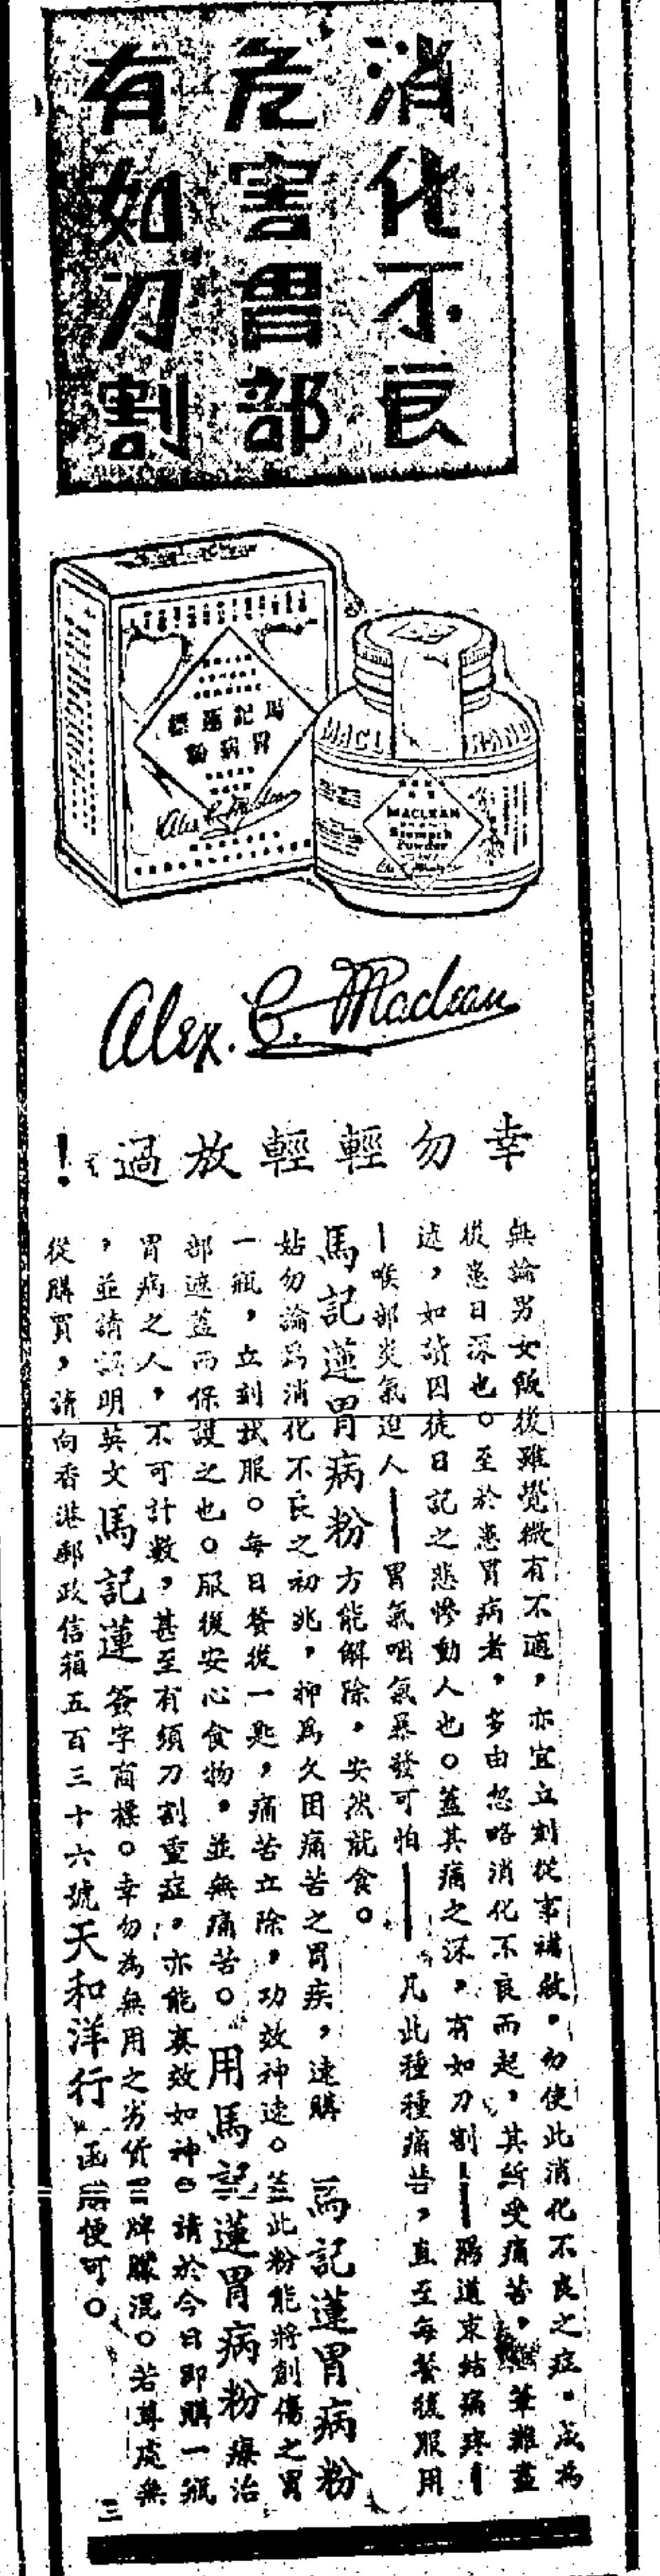 消化不良
危害胃部
有如刀割
馬記蓮標
胃病粉
Alex C Maclean
MACL
RAND
MACLEAN
Stomach
Powder
Alex. C. Maclean
幸勿輕輕放過!
無論男女飯後雖覺微有不適,亦宜立刻從事補救。勿使此消化不良之症。成為
後患日深也。至於患胃病者,多由忽略消化不良而起,其所受痛苦,筆難盡
述,如讀囚徒日記之悲慘動人也。蓋其痛之深,有如刀割——腸道束結痛疼—
—喉部炎氣迫人——胃氣咽氣暴發可怕——凡此種種痛苦,直至每餐後服用
馬記蓮胃病粉方能解除,安然就食。
姑勿論為消化不良之初兆,抑為久困痛苦之胃疾,速購 馬記蓮胃病粉
一瓶,立刻試服。每日餐後一匙,痛苦立除,功效神速。蓋此粉能將創傷之胃
部遮蓋而保護之也。服後安心食物,並無痛苦。用馬記蓮胃病粉療治
胃病之人,不可計數,甚至有須刀割重症,亦能奏效如神。請於今日即購一瓶
,並請認明英文馬記蓮簽字商標。幸勿為無用之劣貨冒牌朦混。若尊處無
從購買,請向香港郵政信箱五百三十六號天和洋行函購便可。
三